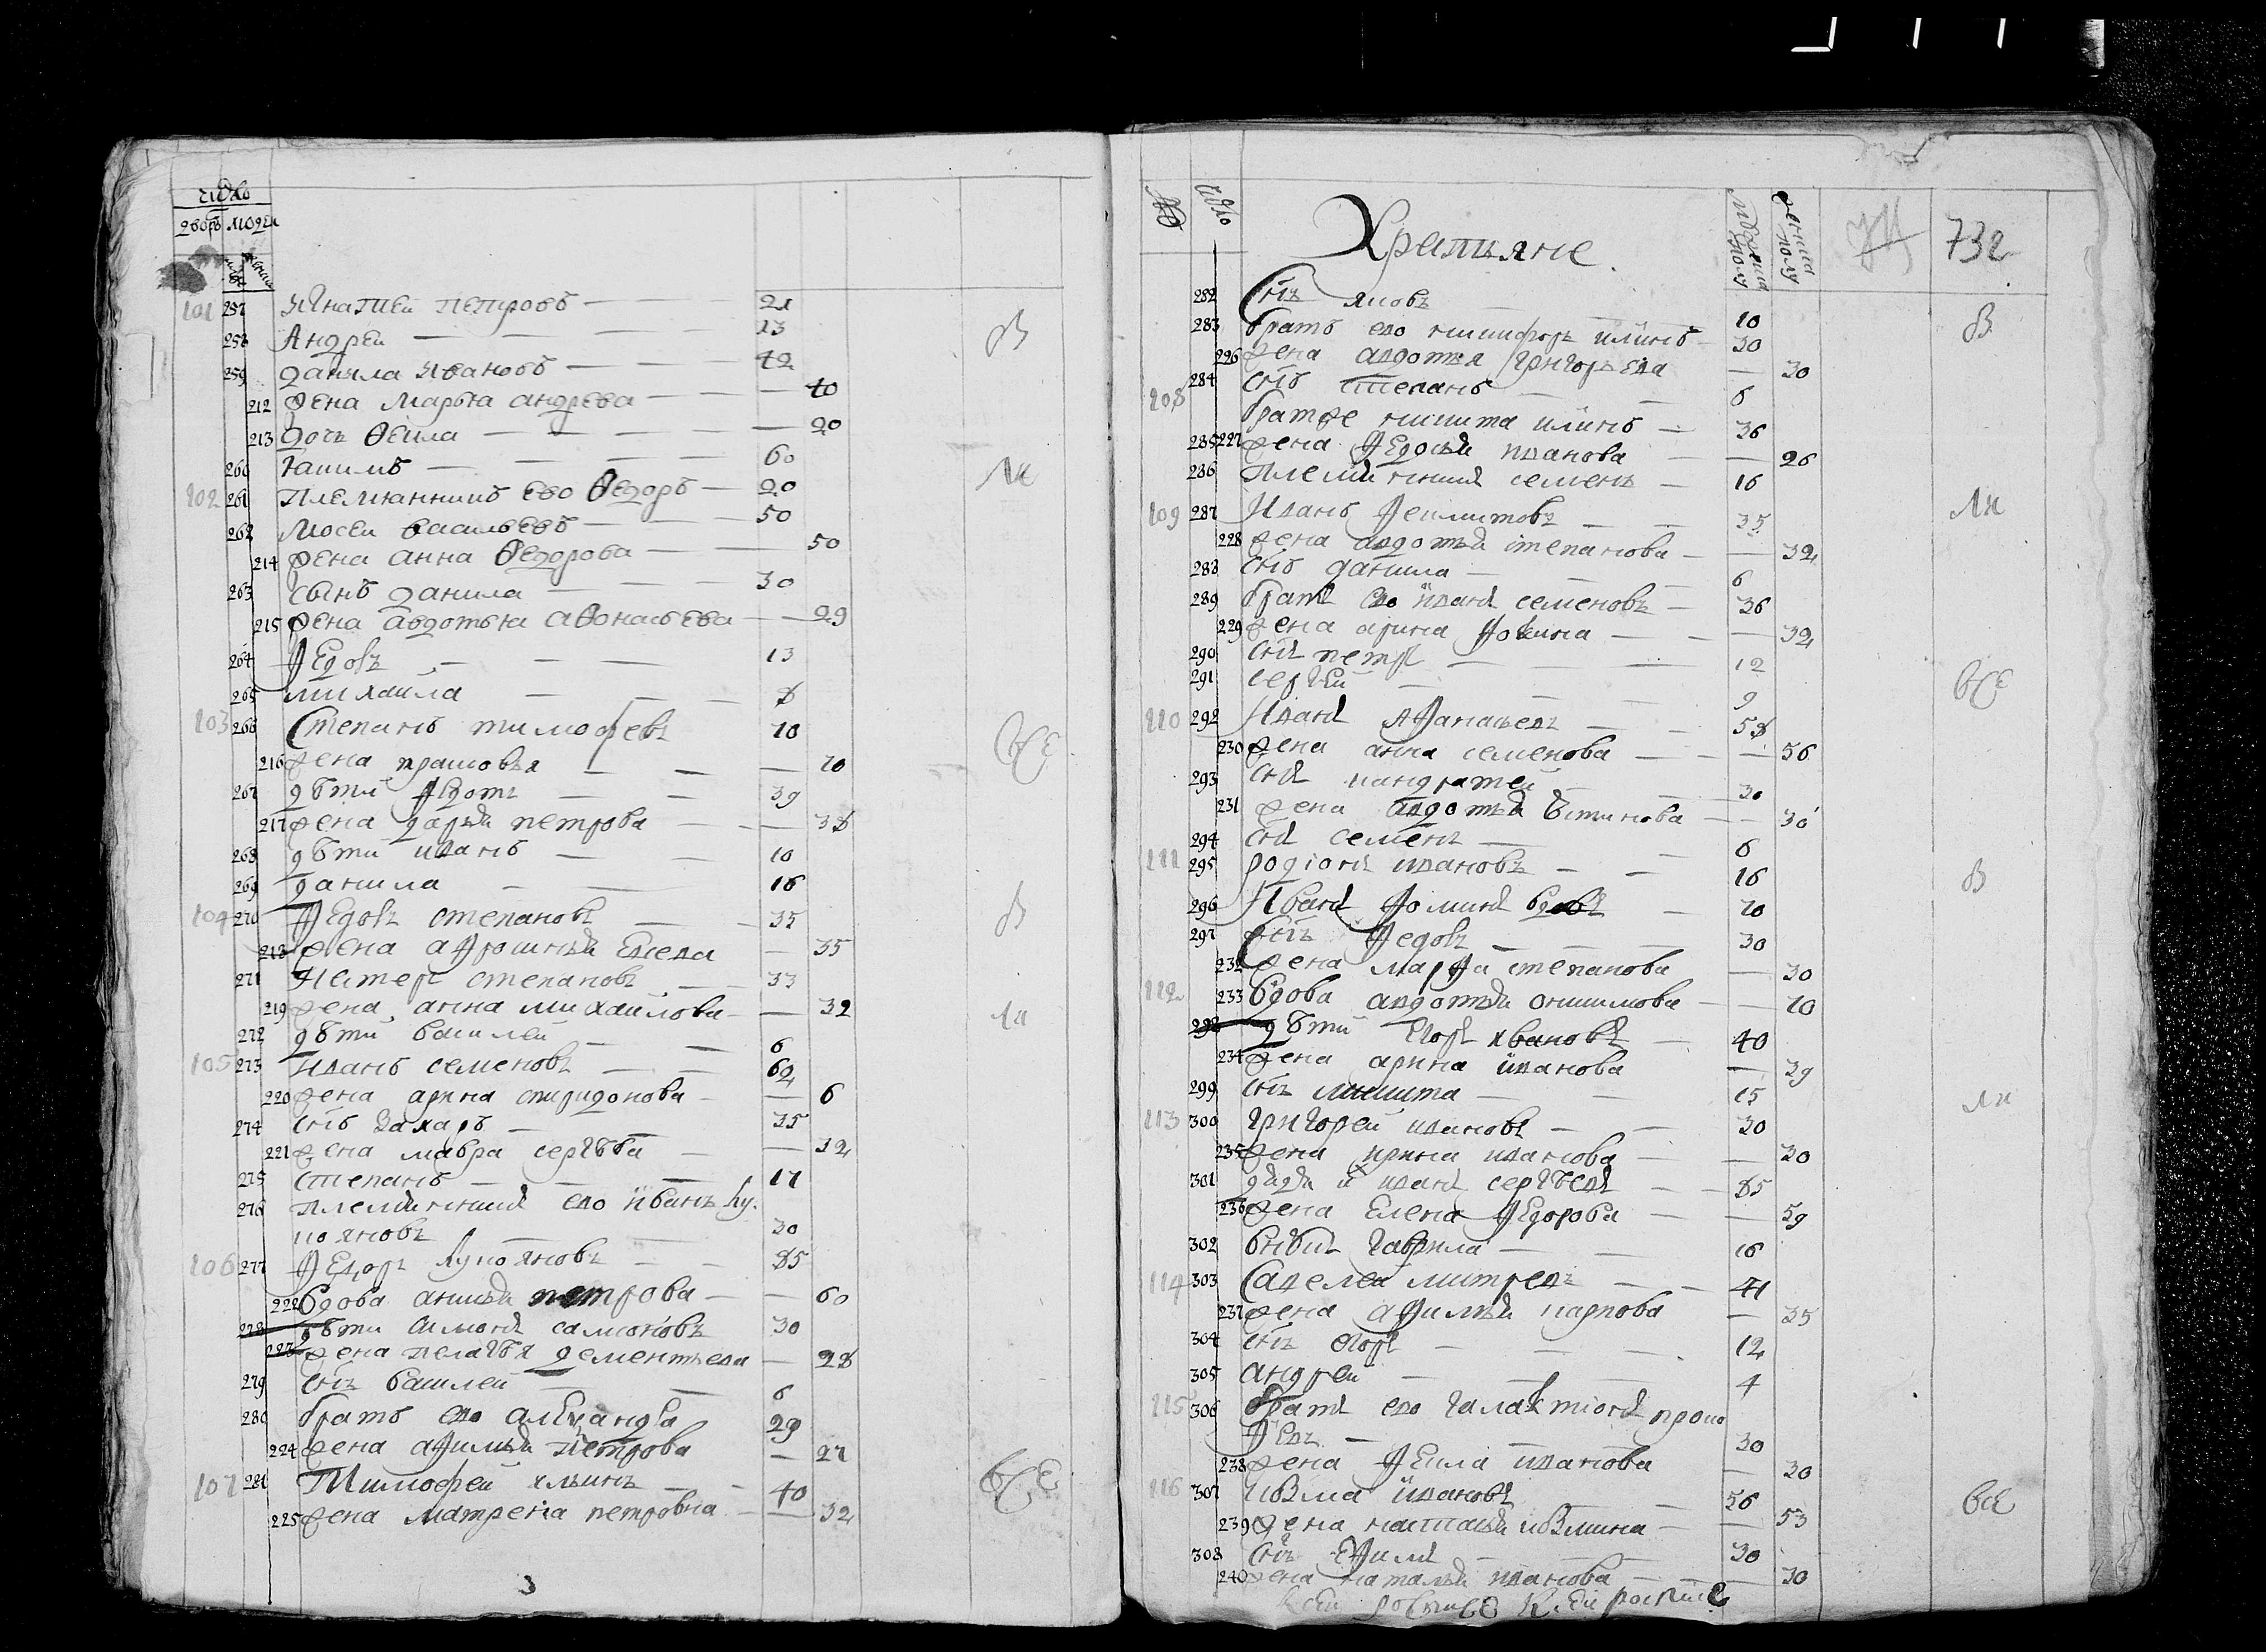 число
дворъ людеи
101 257 Игнатеи петровъ — 21
258 Андреи — 13
259 данила Ивановъ — 42
212 жена марья андрева — 40
213 дочь Ѳекла — 20
260 Якимъ — 60
102 261 племянникъ ево Ѳедоръ — 20
262 Мосеи васильевъ — 50
214 жена анна Ѳедорова — 50
263 сынъ данила — 30
215 жена авдотья аѲонасьева — 29
264 Ѳедоръ — 13
265 михаила — 8
103 266 Степанъ тимофевъ — 70
216 жена прасковья — 70
267 дѣти Ѳедотъ — 39
217 жена дарья петрова — 38
268 дѣти иванъ — 10
269 данила — 16
104 270 Ѳедоръ степановъ — 35
218 жена афросинья — 35
271 Нестеръ степановъ — 33
219 жена анна михаилова — 32
272 дѣти василеи — 6
105 273 иванъ семеновъ — 62
220 жена арина спиридонова — 6
274 снъ захаръ — 35
221 жена мавра сергѣва — 32
275 степанъ — 17
276 племянникъ ево иванъ лу
кояновъ — 30
106 277 Ѳедоръ лукояновъ — 85
222 вдова анисья петрова — 60
278 дѣти самсоновъ — 30
223 жена пелагѣя дементьева — 28
279 снъ василеи — 6
280 братъ ево александръ — 29
224 жена афимья петрова — 27
107 281 Тимофеи ильинъ — 40
225 жена матрена петровна — 32
В
лк
все
В
лк
все
3
число
Крестьяне
мужеска полу
женска полу
732
282 снъ яковъ — 10
283 братъ ево никифоръ илинъ — 30
226 жена авдотья григорьева — 30
284 снъ степанъ — 6
108 братъ же никита илинъ — 36
285 227 жена Ѳедосья иванова — 26
286 племянникъ семенъ — 16
109 287 Иванъ — 35
228 жена авдотья степанова — 32
288 снъ данила — 6
289 братъ ево иванъ семеновъ — 36
229 жена арина Ѳомина — 32
290 снъ петръ — 12
291 сергеи — 9
110 292 Иванъ аѲанасьевъ — 58
230 жена анна семенова — 56
293 снъ кандратеи — 30
231 жена авдотья устинова — 30
294 снъ семенъ — 6
111 295 родионъ ивановъ — 16
296 Иванъ Ѳоминъ вдовъ — 70
297 снъ Ѳедоръ — 30
232 жена марѲа степанова — 30
112 233 вдова авдотья — 70
298 дѣти егоръ ивановъ — 40
234 жена арина иванова — 39
299 снъ никита — 15
113 300 григореи ивановъ — 30
235 жена ирина иванова — 30
301 дядя иванъ сергѣевъ — 85
236 жена Елена Ѳедорова — 59
302 внукъ гаврила — 16
114 303 Савелеи митревъ — 41
237 жена афимья карпова — 35
304 снъ егоръ — 12
305 андреи — 4
115 306 братъ ево галактионъ проко
Ѳевъ — 30
238 жена Ѳекла иванова — 30
116 307 козма ивановъ — 56
239 жена настасья козмина — 53
308 снъ ефимъ — 30
240 жена наталья иванова — 30
В
лк
все
В
лк
все